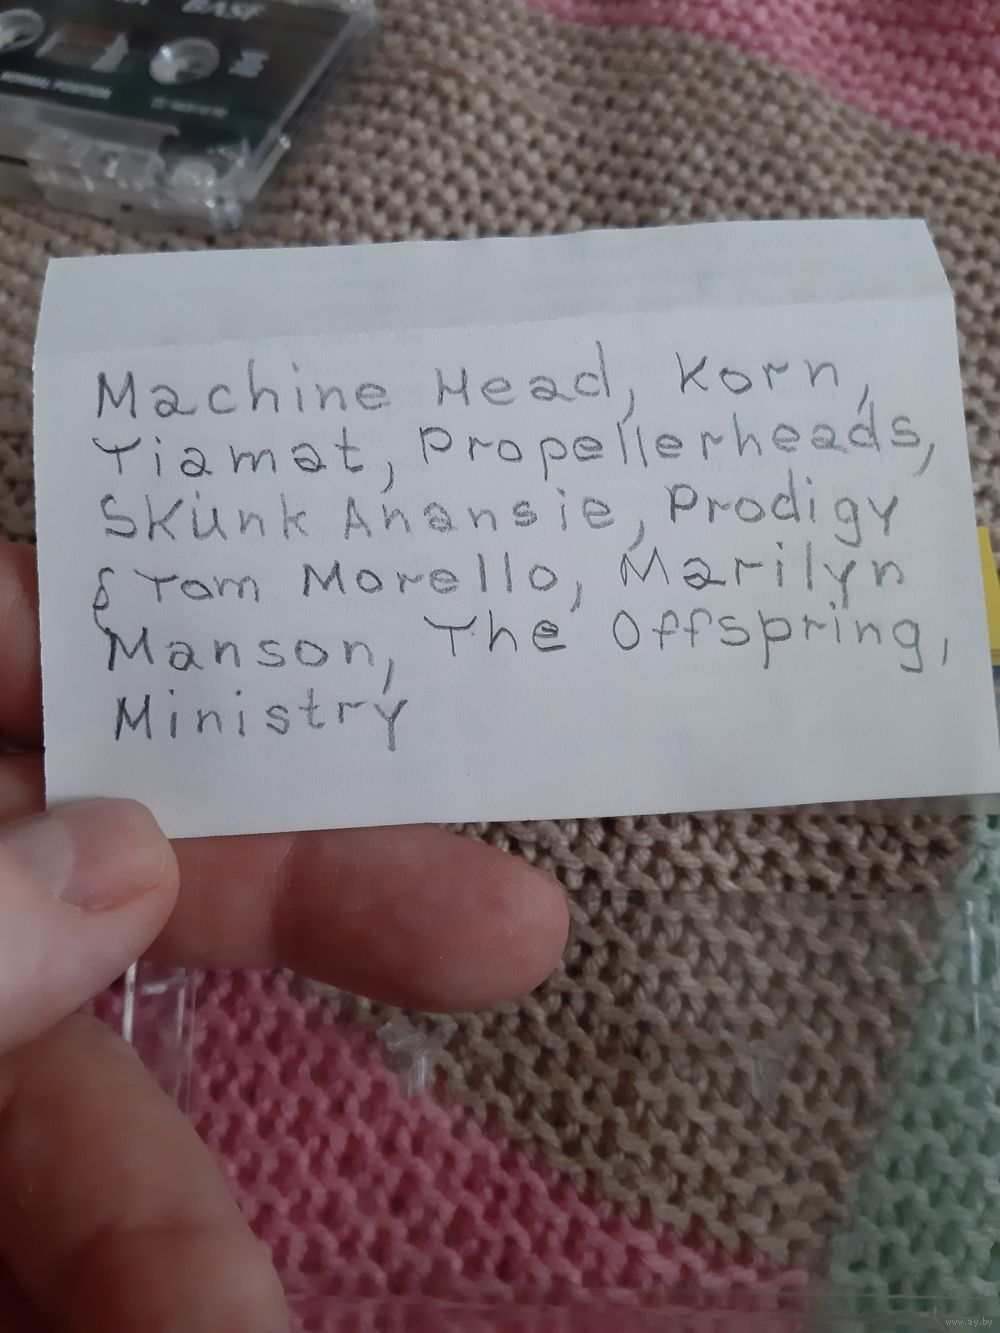 BASF
NORMAL POSITION
Machine Head, Korn,
Tiamat, Propellerheads,
Skunk Anansie, Prodigy
& Tom Morello, Marilyn
Manson, The Offspring,
Ministry
www.ay.by